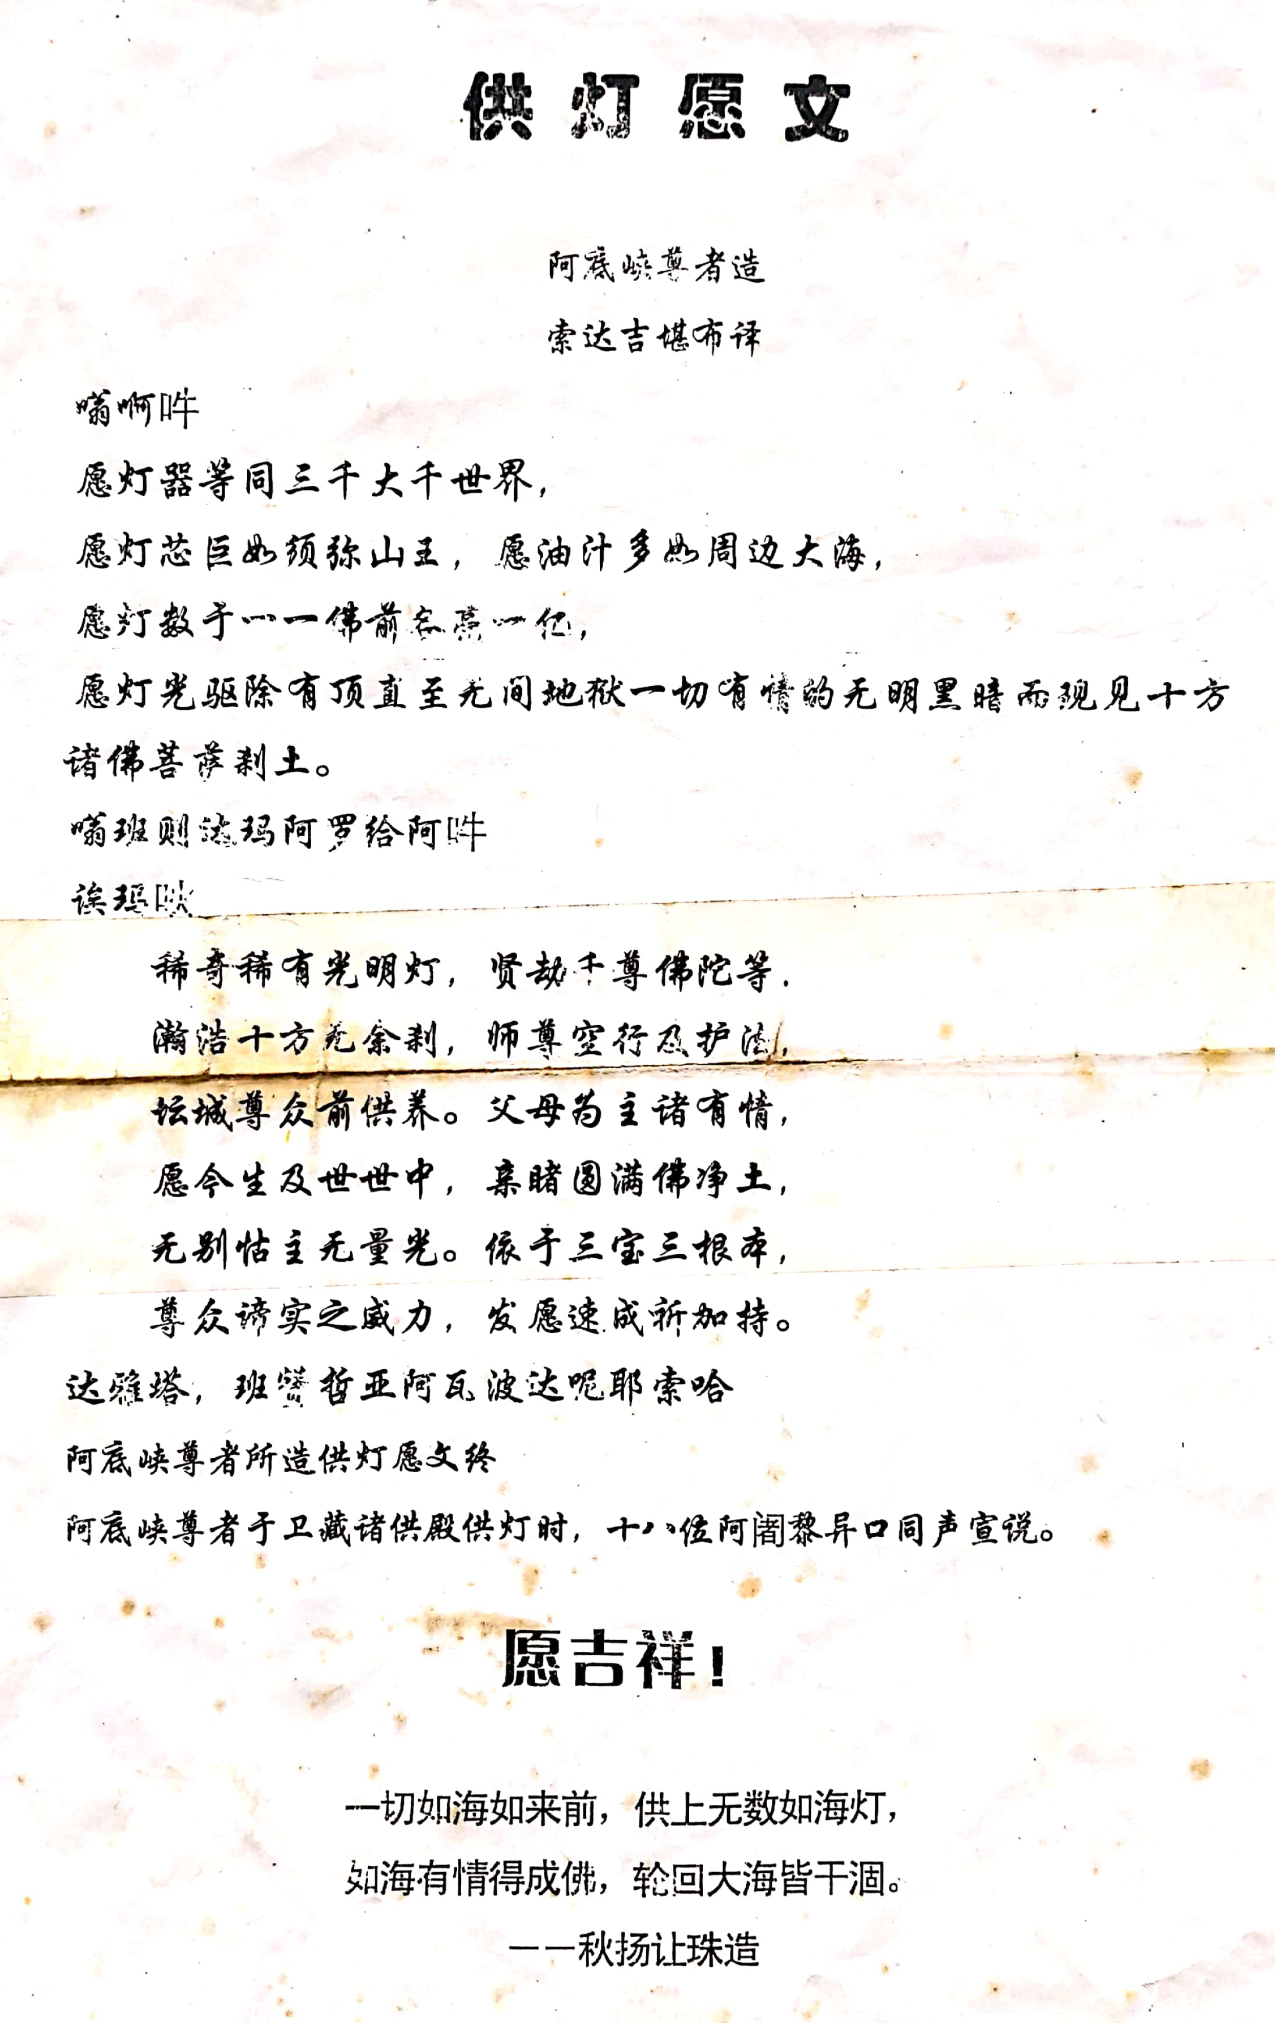 供灯愿文
阿底峡尊者造
索达吉堪布译
嗡啊吽
愿灯器等同三千大千世界，
愿灯芯巨如须弥山王，愿油汁多如周边大海，
愿灯数于一一佛前亮一亿，
愿灯光驱除有顶直至无间地狱一切有情的无明黑暗而现见十方
诸佛菩萨刹土。
嗡班则达玛阿罗给阿吽
诶玛吙
稀奇稀有光明灯，贤劫千尊佛陀等，
瀚浩十方无余刹，师尊空行及护法，
坛城尊众前供养。父母为主诸有情，
愿今生及世世中，亲睹圆满佛净土，
无别怙主无量光。依于三宝三根本，
尊众谛实之威力，发愿速成祈加持。
达雅塔，班赞哲亚阿瓦波达呢耶索哈
阿底峡尊者所造供灯愿文终
阿底峡尊者于卫藏诸供殿供灯时，十八位阿阇黎异口同声宣说。
愿吉祥！
一切如海如来前，供上无数如海灯，
如海有情得成佛，轮回大海皆干涸。
——秋扬让珠造